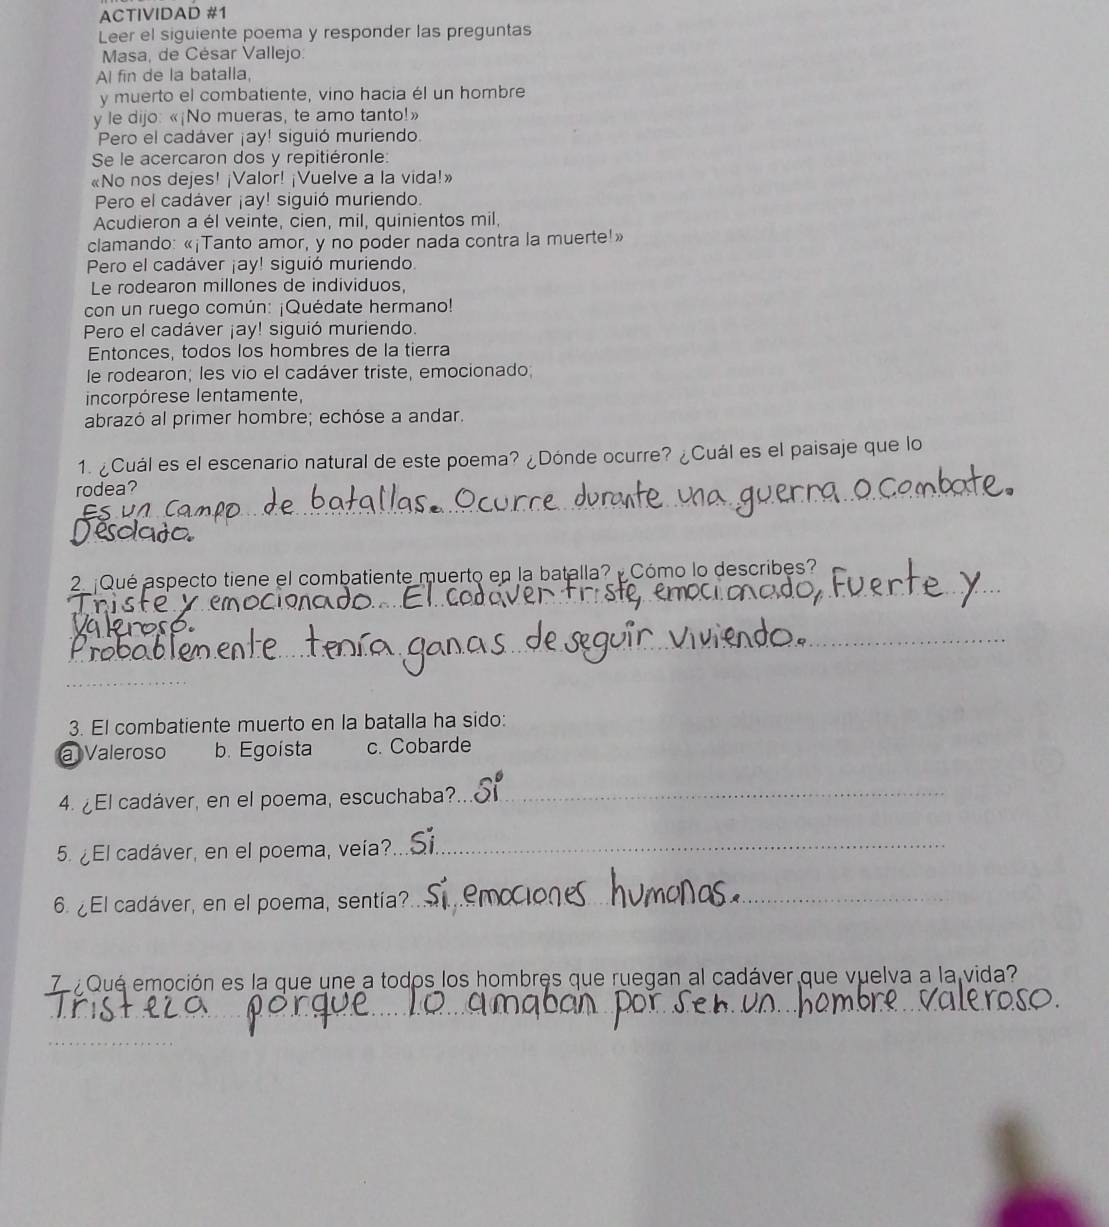 ACTIVIDAD #1
Leer el siguiente poema y responder las preguntas
Masa, de César Vallejo:
Al fin de la batalla,
y muerto el combatiente, vino hacia él un hombre
y le dijo: «¡No mueras, te amo tanto!»
Pero el cadáver ¡ay! siguió muriendo.
Se le acercaron dos y repitiéronle:
«No nos dejes! ¡Valor! ¡Vuelve a la vida!»
Pero el cadáver ¡ay! siguió muriendo.
Acudieron a él veinte, cien, mil, quinientos mil,
clamando: «¡Tanto amor, y no poder nada contra la muerte!»
Pero el cadáver ¡ay! siguió muriendo.
Le rodearon millones de individuos,
con un ruego común: ¡Quédate hermano!
Pero el cadáver ¡ay! siguió muriendo.
Entonces, todos los hombres de la tierra
le rodearon; les vio el cadáver triste, emocionado;
incorpórese lentamente,
abrazó al primer hombre; echóse a andar.
1. ¿Cuál es el escenario natural de este poema? ¿Dónde ocurre? ¿Cuál es el paisaje que lo
rodea?
Es un campo de batallas. Ocurre durante una guerra o combate.
Desolado.
2. ¡Qué aspecto tiene el combatiente muerto en la batalla? ¿Cómo lo describes?
Triste y emocionado. El cadáver triste, emocionado, Fuerte y
Valeroso.
Probablemente tenía ganas de seguir viviendo.
3. El combatiente muerto en la batalla ha sido:
a. Valeroso b. Egoísta c. Cobarde
4. ¿El cadáver, en el poema, escuchaba?... Sí
5. ¿El cadáver, en el poema, veía?... Sí
6. ¿El cadáver, en el poema, sentía?... Sí, emociones humanas.
7. ¿Qué emoción es la que une a todos los hombres que ruegan al cadáver que vuelva a la vida?
Tristeza porque lo amaban por ser un hombre valeroso.